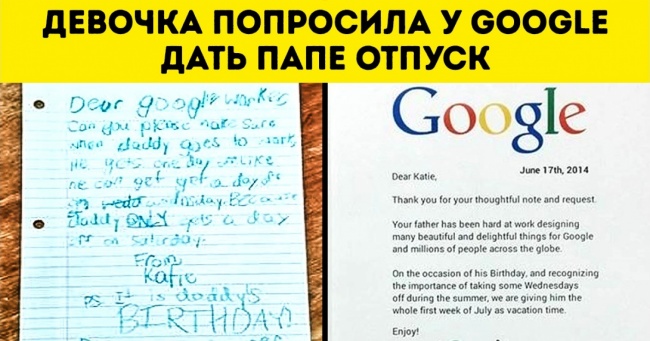 ДЕВОЧКА ПОПРОСИЛА У GOOGLE
ДАТЬ ПАПЕ ОТПУСК
Dear google worker,
Can you please make sure
when daddy goes to work
He gets one day
he can get a day of
on wednsday. BECause
daddy ONLY gets a day
off on Saturday.
From
Katie
P.S. It is daddy's
BIRTHDAY!
Google
June 17th, 2014
Dear Katie,
Thank you for your thoughtful note and request.
Your father has been hard at work designing
many beautiful and delightful things for Google
and millions of people across the globe.
On the occasion of his Birthday, and recognizing
the importance of taking some Wednesdays
off during the summer, we are giving him the
whole first week of July as vacation time.
Enjoy!